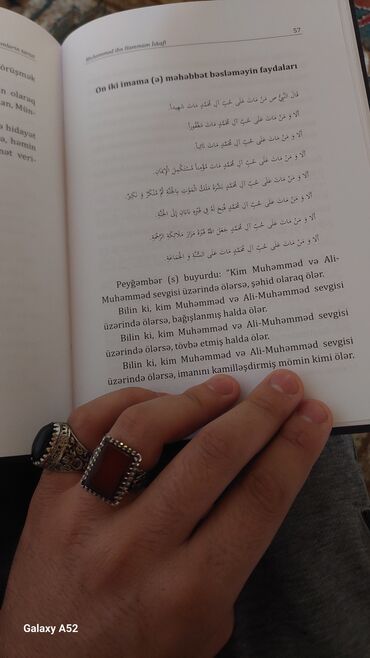 örüşmək
n olaraq
an. Mün-
ə hidayət
, həmin
nət veri-
Muhəmməd ibn Hammam İskafi
57
On iki imama (ə) məhəbbət bəsləməyin faydaları
قَالَ النَّبِيُّ ص مَنْ مَاتَ عَلَى حُبِّ آلِ مُحَمَّدٍ مَاتَ شَهِيداً.
أَلَا وَ مَنْ مَاتَ عَلَى حُبِّ آلِ مُحَمَّدٍ مَاتَ مَغْفُوراً.
أَلَا وَ مَنْ مَاتَ عَلَى حُبِّ آلِ مُحَمَّدٍ مَاتَ تَائِباً.
أَلَا وَ مَنْ مَاتَ عَلَى حُبِّ آلِ مُحَمَّدٍ مَاتَ مُؤْمِناً مُسْتَكْمِلَ الْإِيمَانِ.
أَلَا وَ مَنْ مَاتَ عَلَى حُبِّ آلِ مُحَمَّدٍ بَشَّرَهُ مَلَكُ الْمَوْتِ بِالْجَنَّةِ ثُمَّ مُنْكَرٌ وَ نَكِيرٌ.
أَلَا وَ مَنْ مَاتَ عَلَى حُبِّ آلِ مُحَمَّدٍ فُتِحَ لَهُ فِي قَبْرِهِ بَابَانِ إِلَى الْجَنَّةِ.
أَلَا وَ مَنْ مَاتَ عَلَى حُبِّ آلِ مُحَمَّدٍ جَعَلَ اللَّهُ قَبْرَهُ مَزَارَ مَلَائِكَةِ الرَّحْمَةِ.
أَلَا وَ مَنْ مَاتَ عَلَى حُبِّ آلِ مُحَمَّدٍ مَاتَ عَلَى السُّنَّةِ وَ الْجَمَاعَةِ.
Peyğəmbər (s) buyurdu: “Kim Muhəmməd və Ali-
Muhəmməd sevgisi üzərində ölərsə, şəhid olaraq ölər.
Bilin ki, kim Muhəmməd və Ali-Muhəmməd sevgisi
üzərində ölərsə, bağışlanmış halda ölər.
Bilin ki, kim Muhəmməd və Ali-Muhəmməd sevgisi
üzərində ölərsə, tövbə etmiş halda ölər.
Bilin ki, kim Muhəmməd və Ali-Muhəmməd sevgisi
üzərində ölərsə, imanını kamilləşdirmiş mömin kimi ölər.
Galaxy A52